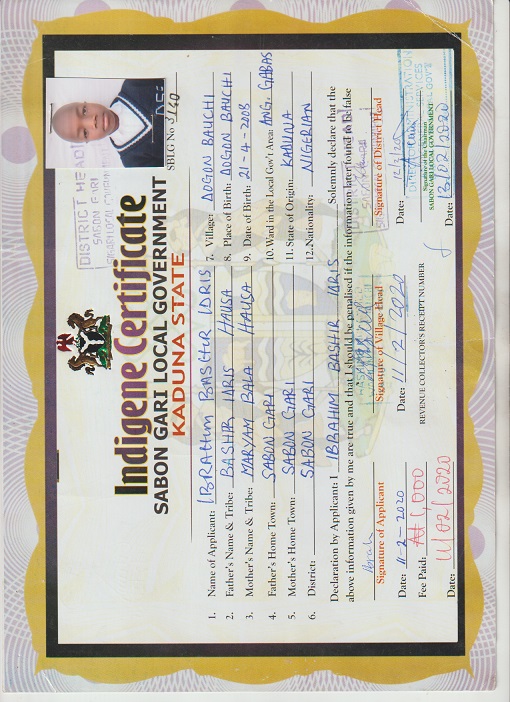 Indigene Certificate
SABON GARI LOCAL GOVERNMENT
KADUNA STATE
DISTRICT HEAD
SABON GARI
SBLG No 3140
1. Name of Applicant: IBRAHIM BASHIR IDRIS
2. Father's Name & Tribe: BASHIR IDRIS HAUSA
3. Mother's Name & Tribe: MARYAM BALA HAUSA
4. Father's Home Town: SABON GARI
5. Mother's Home Town: SABON GARI
6. District: SABON GARI
7. Village: DOGON BAUCHI
8. Place of Birth: DOGON BAUCHI
9. Date of Birth: 21-4-2003
10. Ward in the Local Gov't Area: ANG. GABAS
11. State of Origin: KADUNA
12. Nationality: NIGERIAN
Declaration by Applicant: I IBRAHIM BASHIR IDRIS Solemnly declare that the
above information given by me are true and that I should be penalised if the information later found to be false
Signature of Applicant
Signature of Village Head
Signature of District Head
Date: 11-2-2020
Date: 11/2/2020
Date:
Fee Paid: ₦1,000
REVENUE COLLECTOR'S RECEIPT NUMBER
Signature of the Chairman
SABON GARI LOCAL GOVERNMENT
Date: 11/02/2020
Date: 13/02/2020